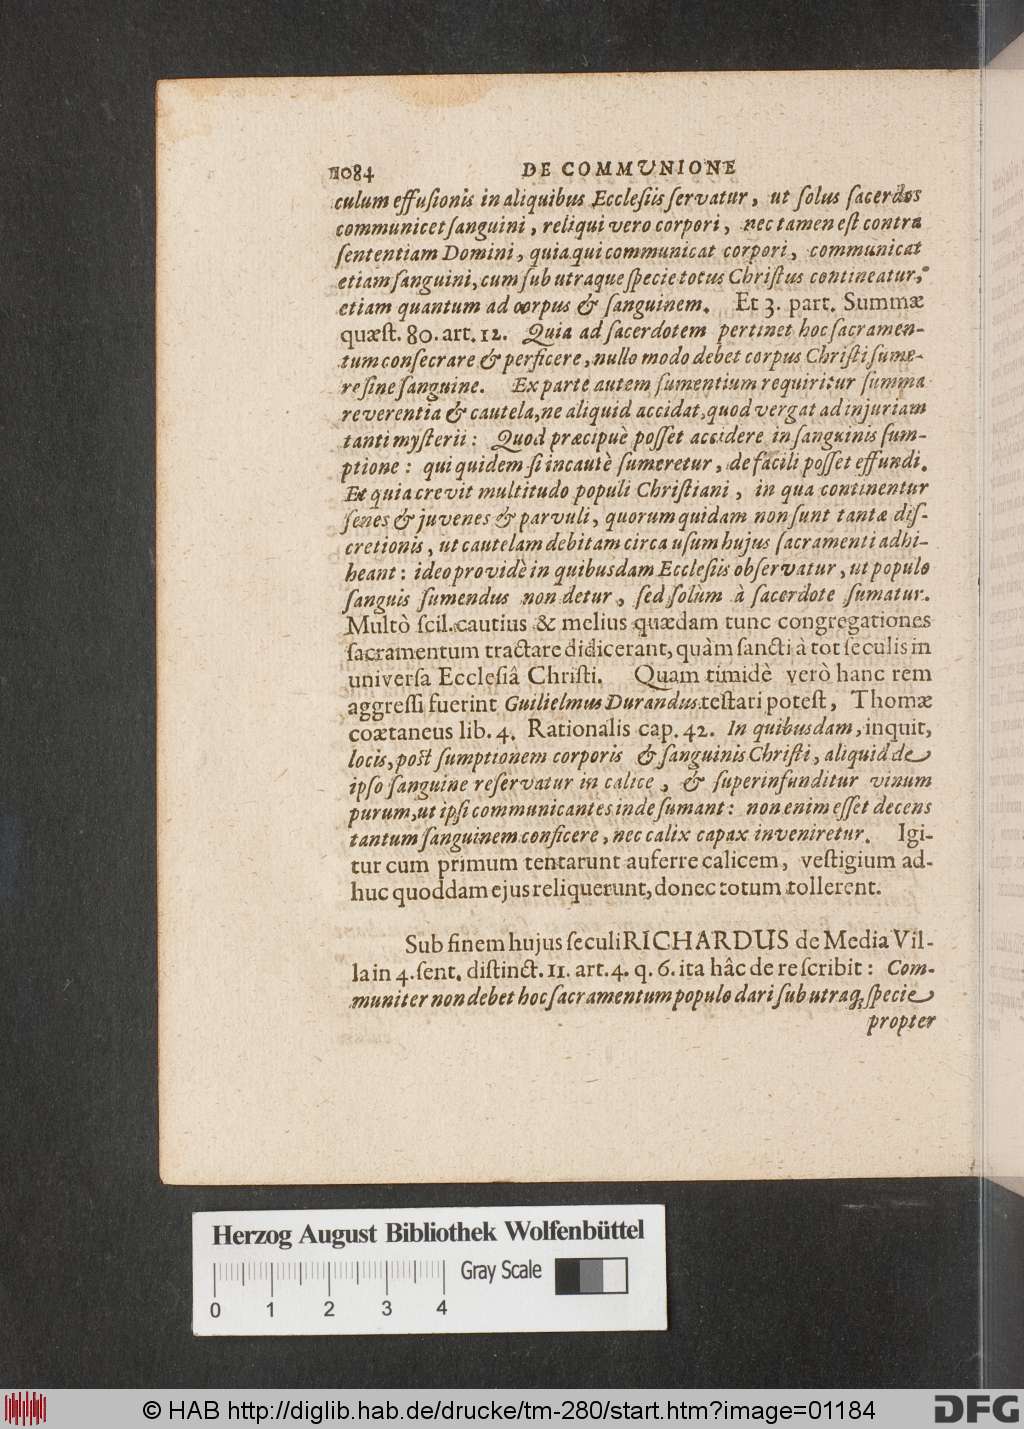 1084 DE COMMUNIONE
culum effusionis in aliquibus Ecclesiis servatur, ut solus sacerdos
communicet sanguini, reliqui vero corpori, nec tamen est contra
sententiam Domini, quia qui communicat corpori, communicat
etiam sanguini, cum sub utraque specie totus Christus contineatur,
etiam quantum ad corpus & sanguinem. Et 3. part. Summæ
quæst. 80. art. 12. Quia ad sacerdotem pertinet hoc sacramen-
tum consecrare & perficere, nullo modo debet corpus Christi sume-
re sine sanguine. Ex parte autem sumentium requiritur summa
reverentia & cautela, ne aliquid accidat, quod vergat ad injuriam
tanti mysterii: Quod præcipuè posset accidere in sanguinis sum-
ptione: qui quidem si incautè sumeretur, de facili posset effundi.
Et quia crevit multitudo populi Christiani, in qua continentur
senes & juvenes & parvuli, quorum quidam non sunt tantæ dis-
cretionis, ut cautelam debitam circa usum hujus sacramenti adhi-
beant: ideo providè in quibusdam Ecclesiis observatur, ut populo
sanguis sumendus non detur, sed solùm à sacerdote sumatur.
Multò scil. cautius & melius quædam tunc congregationes
sacramentum tractare didicerant, quàm sancti à tot seculis in
universa Ecclesiâ Christi. Quam timidè verò hanc rem
aggressi fuerint Guilielmus Durandus testari potest, Thomæ
coætaneus lib. 4. Rationalis cap. 42. In quibusdam, inquit,
locis, post sumptionem corporis & sanguinis Christi, aliquid de
ipso sanguine reservatur in calice, & superinfunditur vinum
purum, ut ipsi communicantes inde sumant: non enim esset decens
tantum sanguinem conficere, nec calix capax inveniretur. Igi-
tur cum primum tentarunt auferre calicem, vestigium ad-
huc quoddam ejus reliquerunt, donec totum tollerent.
Sub finem hujus seculi RICHARDUS de Media Vil-
la in 4. sent. distinct. 11. art. 4. q. 6. ita hâc de re scribit: Com-
muniter non debet hoc sacramentum populo dari sub utraq; specie
propter
Herzog August Bibliothek Wolfenbüttel
Gray Scale
0 1 2 3 4
© HAB http://diglib.hab.de/drucke/tm-280/start.htm?image=01184
DFG